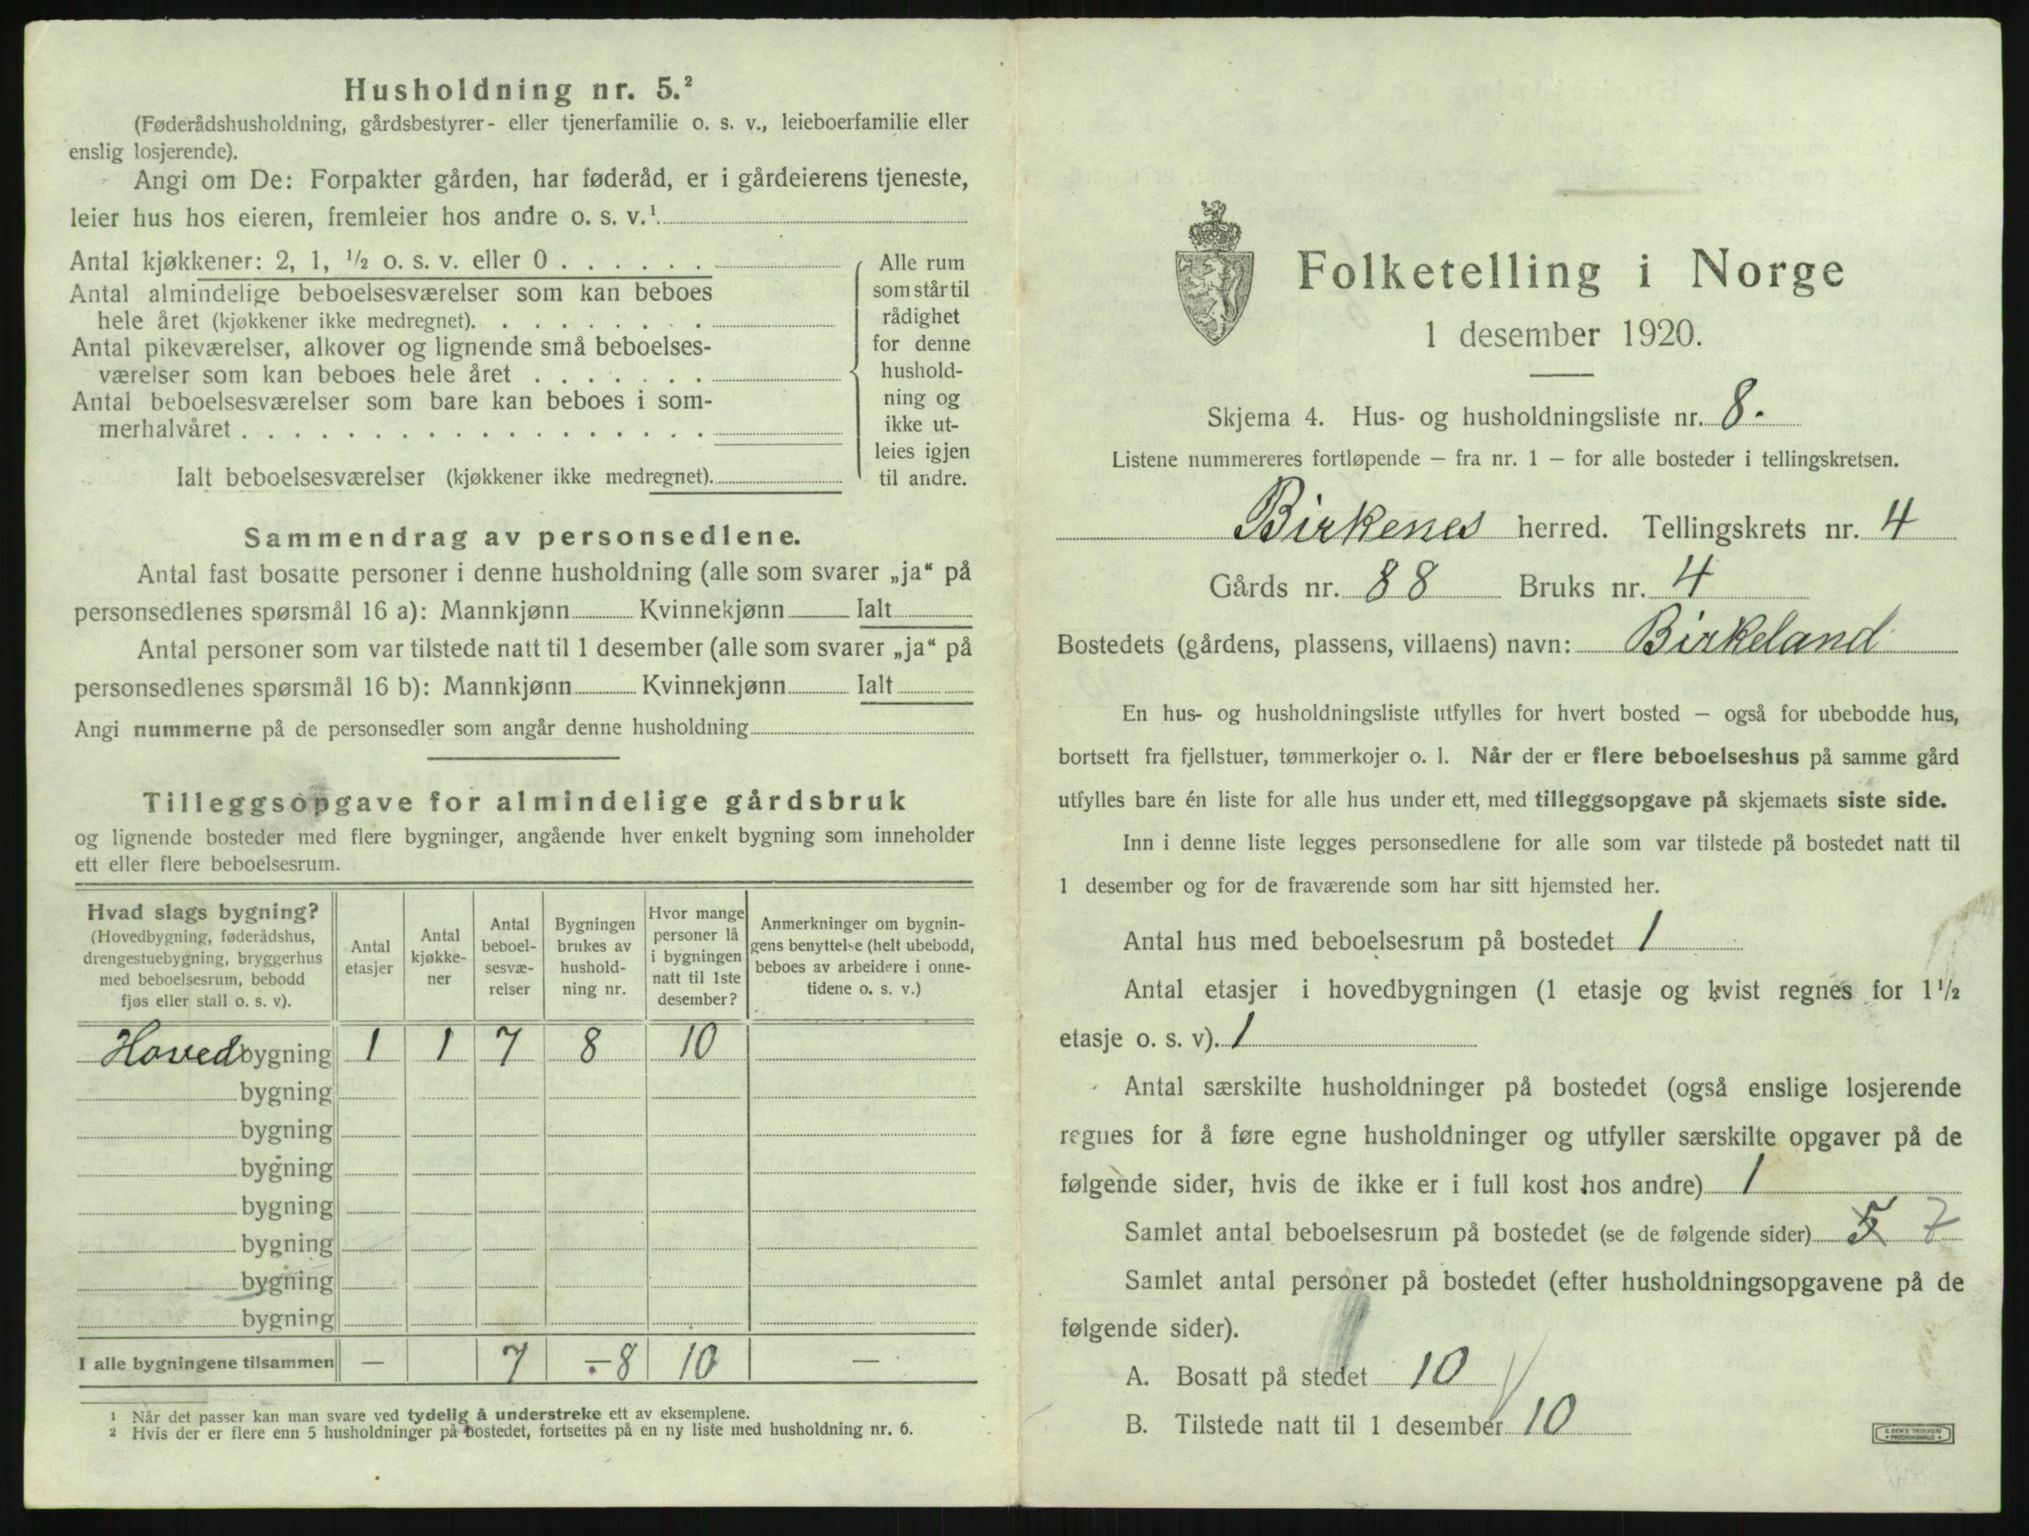 Husholdning nr. 5.²
(Føderådshusholdning, gårdsbestyrer- eller tjenerfamilie o. s. v., leieboerfamilie eller
enslig losjerende).
Angi om De: Forpakter gården, har føderåd, er i gårdeierens tjeneste,
leier hus hos eieren, fremleier hos andre o. s. v.¹
Antal kjøkkener: 2, 1, ½ o. s. v. eller 0 . . . . . .
Antal almindelige beboelsesværelser som kan beboes
hele året (kjøkkener ikke medregnet). . . . . . . .
Antal pikeværelser, alkover og lignende små beboelses-
værelser som kan beboes hele året . . . . . . .
Antal beboelsesværelser som bare kan beboes i som-
merhalvåret . . . . . . . . . . . . . . . . . .
Ialt beboelsesværelser (kjøkkener ikke medregnet).
Alle rum
som står til
rådighet
for denne
hushold-
ning og
ikke ut-
leies igjen
til andre.
Sammendrag av personsedlene.
Antal fast bosatte personer i denne husholdning (alle som svarer „ja“ på
personsedlenes spørsmål 16 a): Mannkjønn Kvinnekjønn Ialt
Antal personer som var tilstede natt til 1 desember (alle som svarer „ja“ på
personsedlenes spørsmål 16 b): Mannkjønn Kvinnekjønn Ialt
Angi nummerne på de personsedler som angår denne husholdning
Tilleggsopgave for almindelige gårdsbruk
og lignende bosteder med flere bygninger, angående hver enkelt bygning som inneholder
ett eller flere beboelsesrum.
Hvad slags bygning?
(Hovedbygning, føderådshus,
drengestuebygning, bryggerhus
med beboelsesrum, bebodd
fjøs eller stall o. s. v).
Antal
etasjer
Antal
kjøkke-
ner
Antal
beboel-
sesvæ-
relser
Bygningen
brukes av
hushold-
ning nr.
Hvor mange
personer lå
i bygningen
natt til 1ste
desember?
Anmerkninger om bygnin-
gens benyttelse (helt ubebodd,
beboes av arbeidere i onne-
tidene o. s. v.)
Hovedbygning 1 1 7 8 10
bygning
bygning
bygning
bygning
bygning
bygning
bygning
I alle bygningene tilsammen — 7 –8 10 —
¹ Når det passer kan man svare ved tydelig å understreke ett av eksemplene.
² Hvis der er flere enn 5 husholdninger på bostedet, fortsettes på en ny liste med husholdning nr. 6.
Folketelling i Norge
1 desember 1920.
Skjema 4. Hus- og husholdningsliste nr. 8.
Listene nummereres fortløpende – fra nr. 1 – for alle bosteder i tellingskretsen.
Birkenes herred. Tellingskrets nr. 4
Gårds nr. 88 Bruks nr. 4
Bostedets (gårdens, plassens, villaens) navn: Birkeland
En hus- og husholdningsliste utfylles for hvert bosted – også for ubebodde hus,
bortsett fra fjellstuer, tømmerkojer o. l. Når der er flere beboelseshus på samme gård
utfylles bare én liste for alle hus under ett, med tilleggsopgave på skjemaets siste side.
Inn i denne liste legges personsedlene for alle som var tilstede på bostedet natt til
1 desember og for de fraværende som har sitt hjemsted her.
Antal hus med beboelsesrum på bostedet 1
Antal etasjer i hovedbygningen (1 etasje og kvist regnes for 1½
etasje o. s. v). 1
Antal særskilte husholdninger på bostedet (også enslige losjerende
regnes for å føre egne husholdninger og utfyller særskilte opgaver på de
følgende sider, hvis de ikke er i full kost hos andre) 1
Samlet antal beboelsesrum på bostedet (se de følgende sider) 5 7
Samlet antal personer på bostedet (efter husholdningsopgavene på de
følgende sider).
A. Bosatt på stedet 10
B. Tilstede natt til 1 desember 10